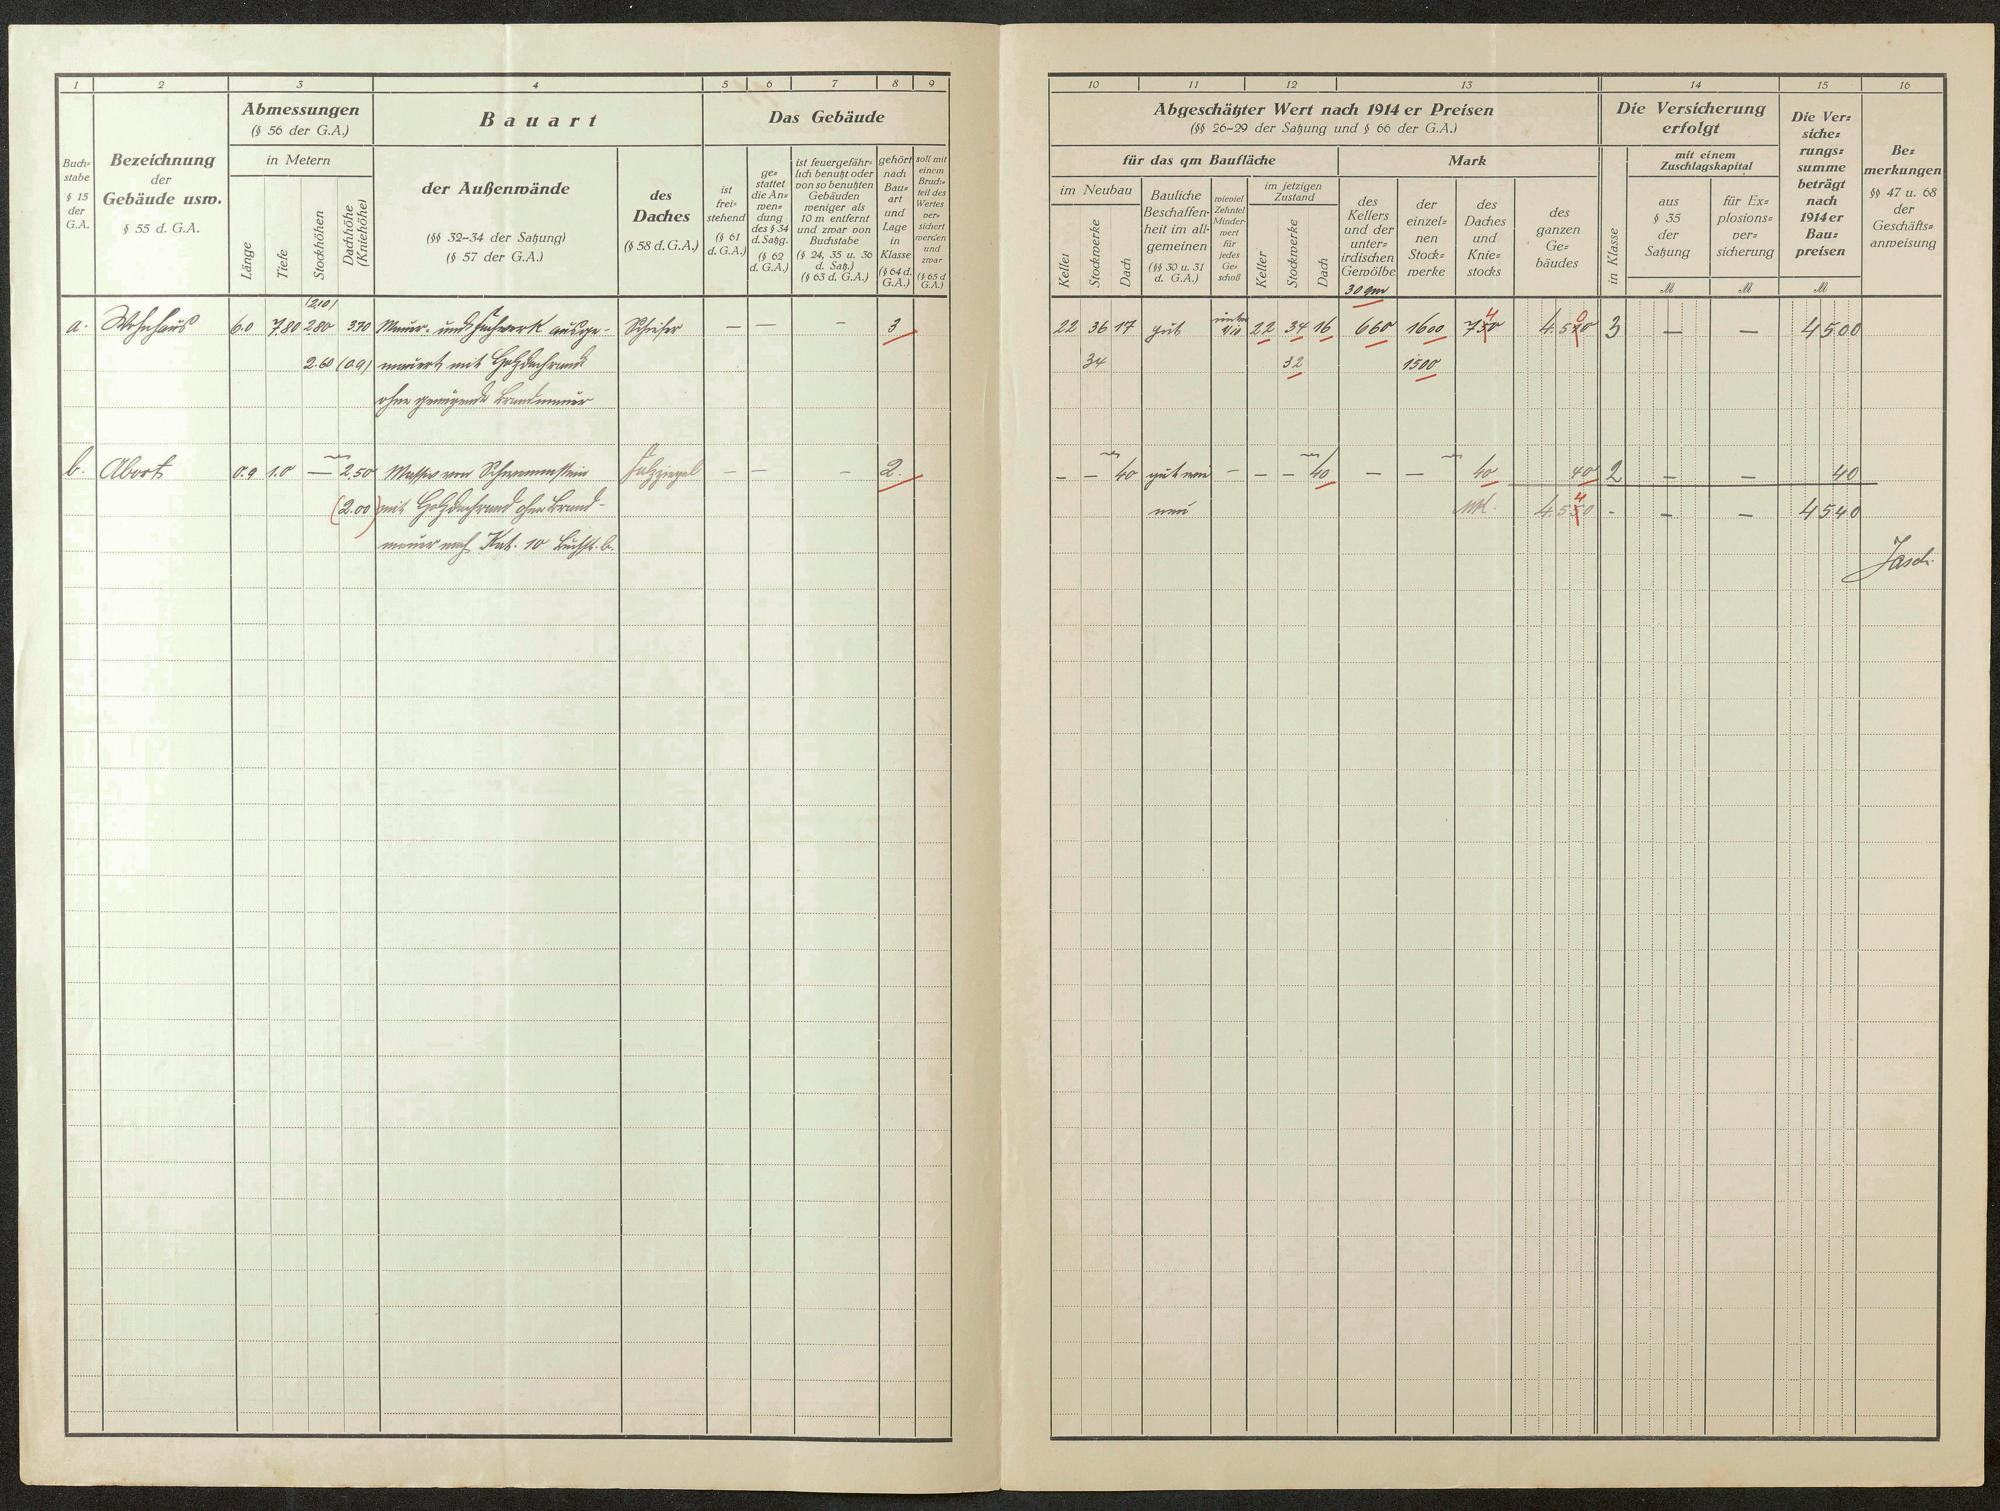 1 2 3 4 5 6 7 8 9
Buch=
stabe
§ 15
der
G.A.
Bezeichnung
der
Gebäude usw.
§ 55 d. G.A.
Abmessungen
(§ 56 der G.A.)
in Metern
Länge
Tiefe
Stockhöhen
Dachhöhe
(Kniehöhe)
Bauart
der Außenwände
(§§ 32–34 der Satzung)
(§ 57 der G.A.)
des
Daches
(§ 58 d. G.A.)
Das Gebäude
ist
frei=
stehend
(§ 61
d. G.A.)
ge=
stattet
die An=
wen=
dung
des § 34
d. Satzg.
(§ 62
d. G.A.)
ist feuergefähr=
lich benutzt oder
von so benutzten
Gebäuden
weniger als
10 m entfernt
und zwar von
Buchstabe
(§ 24, 35 u. 36
d. Satz.)
(§ 63 d. G.A.)
gehört
nach
Bau=
art
und
Lage
in
Klasse
(§ 64 d.
G.A.)
soll mit
einem
Bruch=
teil des
Wertes
ver=
sichert
werden
und
zwar
(§ 65 d
G.A.)
(210)
a. Wohnhaus 6.0 7.80 2.80 3.70 Mauer- und Fachwerk ausge- Schiefer — — — 3
2.60 (0.9) mauert mit Holzdachrand
ohne genügende Brandmauer
b. Abort 0.9 1.0 — 2.50 Massiv von Schwemmstein Falzziegel — — — 2.
(2.00) mit Holzdachrand ohne Brand-
mauer nach Kat. 10 Buchst. b.
10 11 12 13 14 15 16
Abgeschätzter Wert nach 1914 er Preisen
(§§ 26–29 der Satzung und § 66 der G.A.)
für das qm Baufläche
Mark
im Neubau
Keller
Stockwerke
Dach
Bauliche
Beschaffen=
heit im all=
gemeinen
(§§ 30 u. 31
d. G.A.)
wieviel
Zehntel
Minder=
wert
für
jedes
Ge=
schoß
im jetzigen
Zustand
Keller
Stockwerke
Dach
des
Kellers
und der
unter=
irdischen
Gewölbe
30 qm
der
einzel=
nen
Stock=
werke
des
Daches
und
Knie=
stocks
des
ganzen
Ge=
bäudes
Die Versicherung
erfolgt
in Klasse
mit einem
Zuschlagskapital
aus
§ 35
der
Satzung
M
für Ex=
plosions=
ver=
sicherung
M
Die Ver=
siche=
rungs=
summe
beträgt
nach
1914 er
Bau=
preisen
M
Be=
merkungen
§§ 47 u. 68
der
Geschäfts=
anweisung
22 36 17 gut unter 1/10 22 34 16 660 1600 3 — — 4500
34 32 1500
— — 40 gut wie — — — 40 — — 40 40 2 — — 40
neu - — — 4540
Jasch.